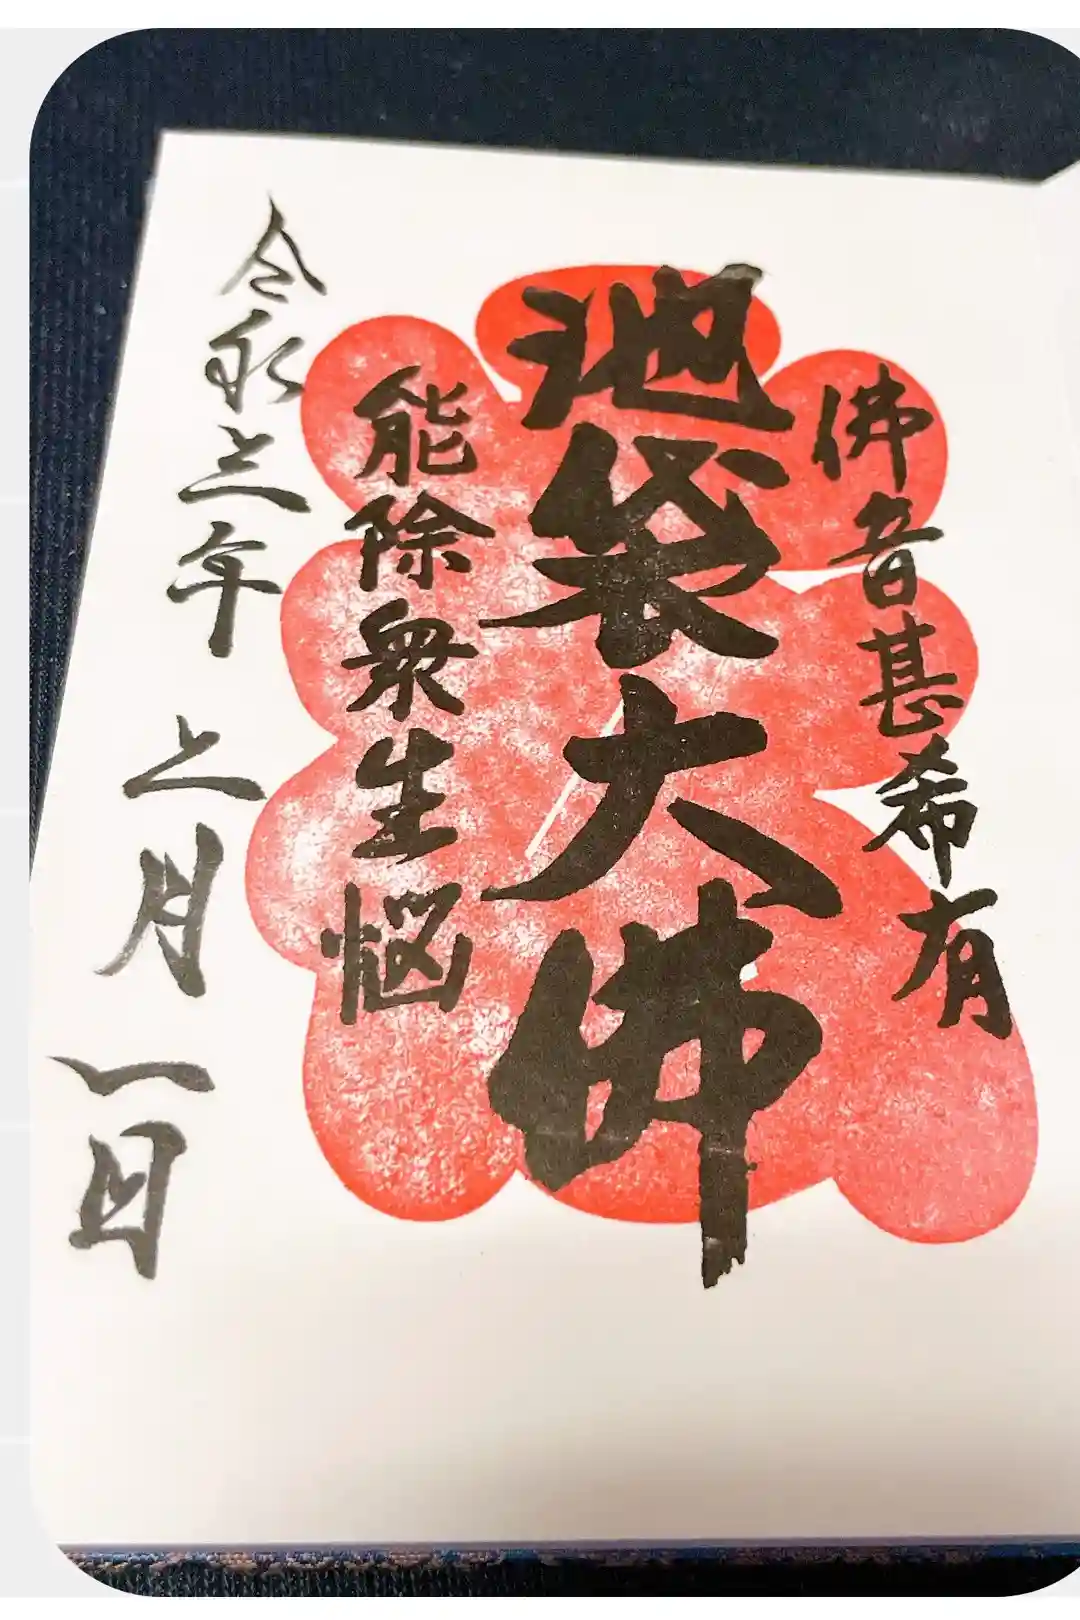 佛音甚希有
池袋大佛
能除衆生悩
令和三年 七月一日